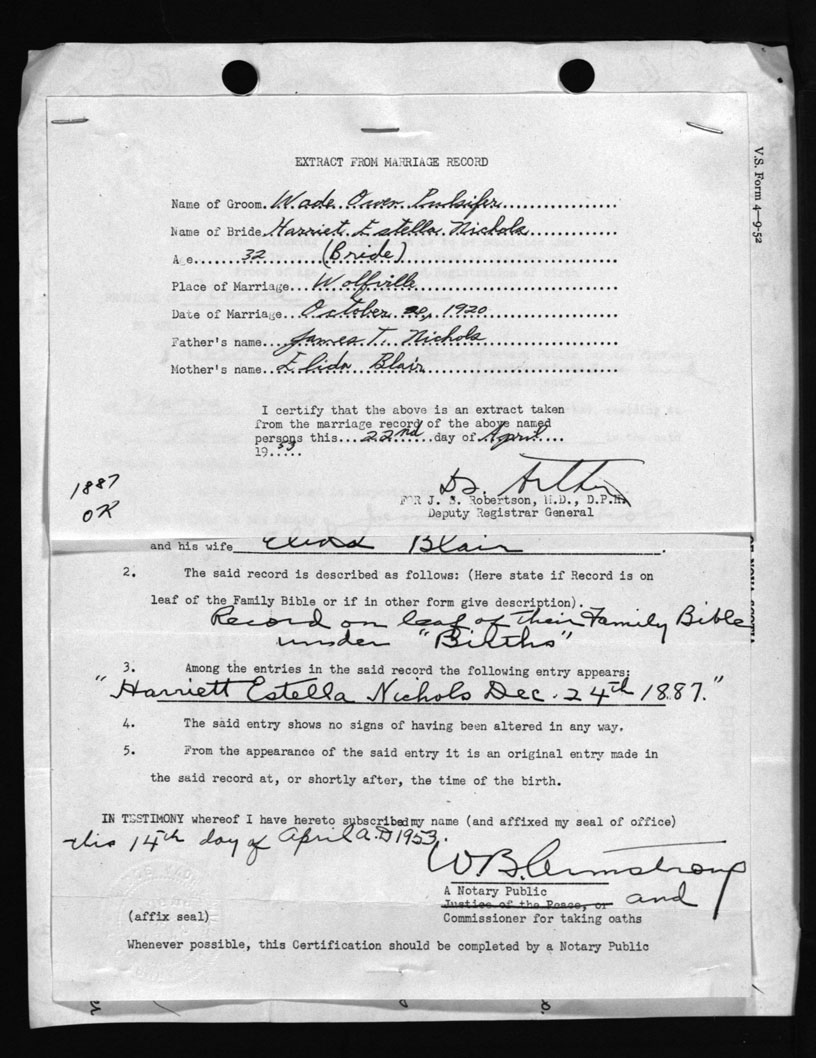 EXTRACT FROM MARRIAGE RECORD
V.S. Form 4—9-52
Name of Groom. Wade Owen Pulsifer
Name of Bride Harriet Estella Nichols
Age....... 32 (Bride)
Place of Marriage... Wolfville
Date of Marriage... October 20, 1920
Father's name... James T. Nichols
Mother's name... Elida Blair
I certify that the above is an extract taken
from the marriage record of the above named
persons this... 22nd ..day of April....
19 53.....
1887
OK
FOR J. S. Robertson, M.D., D.P.H.
Deputy Registrar General
and his wife Blair .
2. The said record is described as follows: (Here state if Record is on
leaf of the Family Bible or if in other form give description).
Record on leaf of their Family Bible
under "Births"
3. Among the entries in the said record the following entry appears:
"Harriett Estella Nichols Dec. 24th 1887."
4. The said entry shows no signs of having been altered in any way.
5. From the appearance of the said entry it is an original entry made in
the said record at, or shortly after, the time of the birth.
IN TESTIMONY whereof I have hereto subscribed my name (and affixed my seal of office)
this 14th day of April A.D 1953.
W B Armstrong
A Notary Public
Justice of the Peace, or and
(affix seal) Commissioner for taking oaths
Whenever possible, this Certification should be completed by a Notary Public